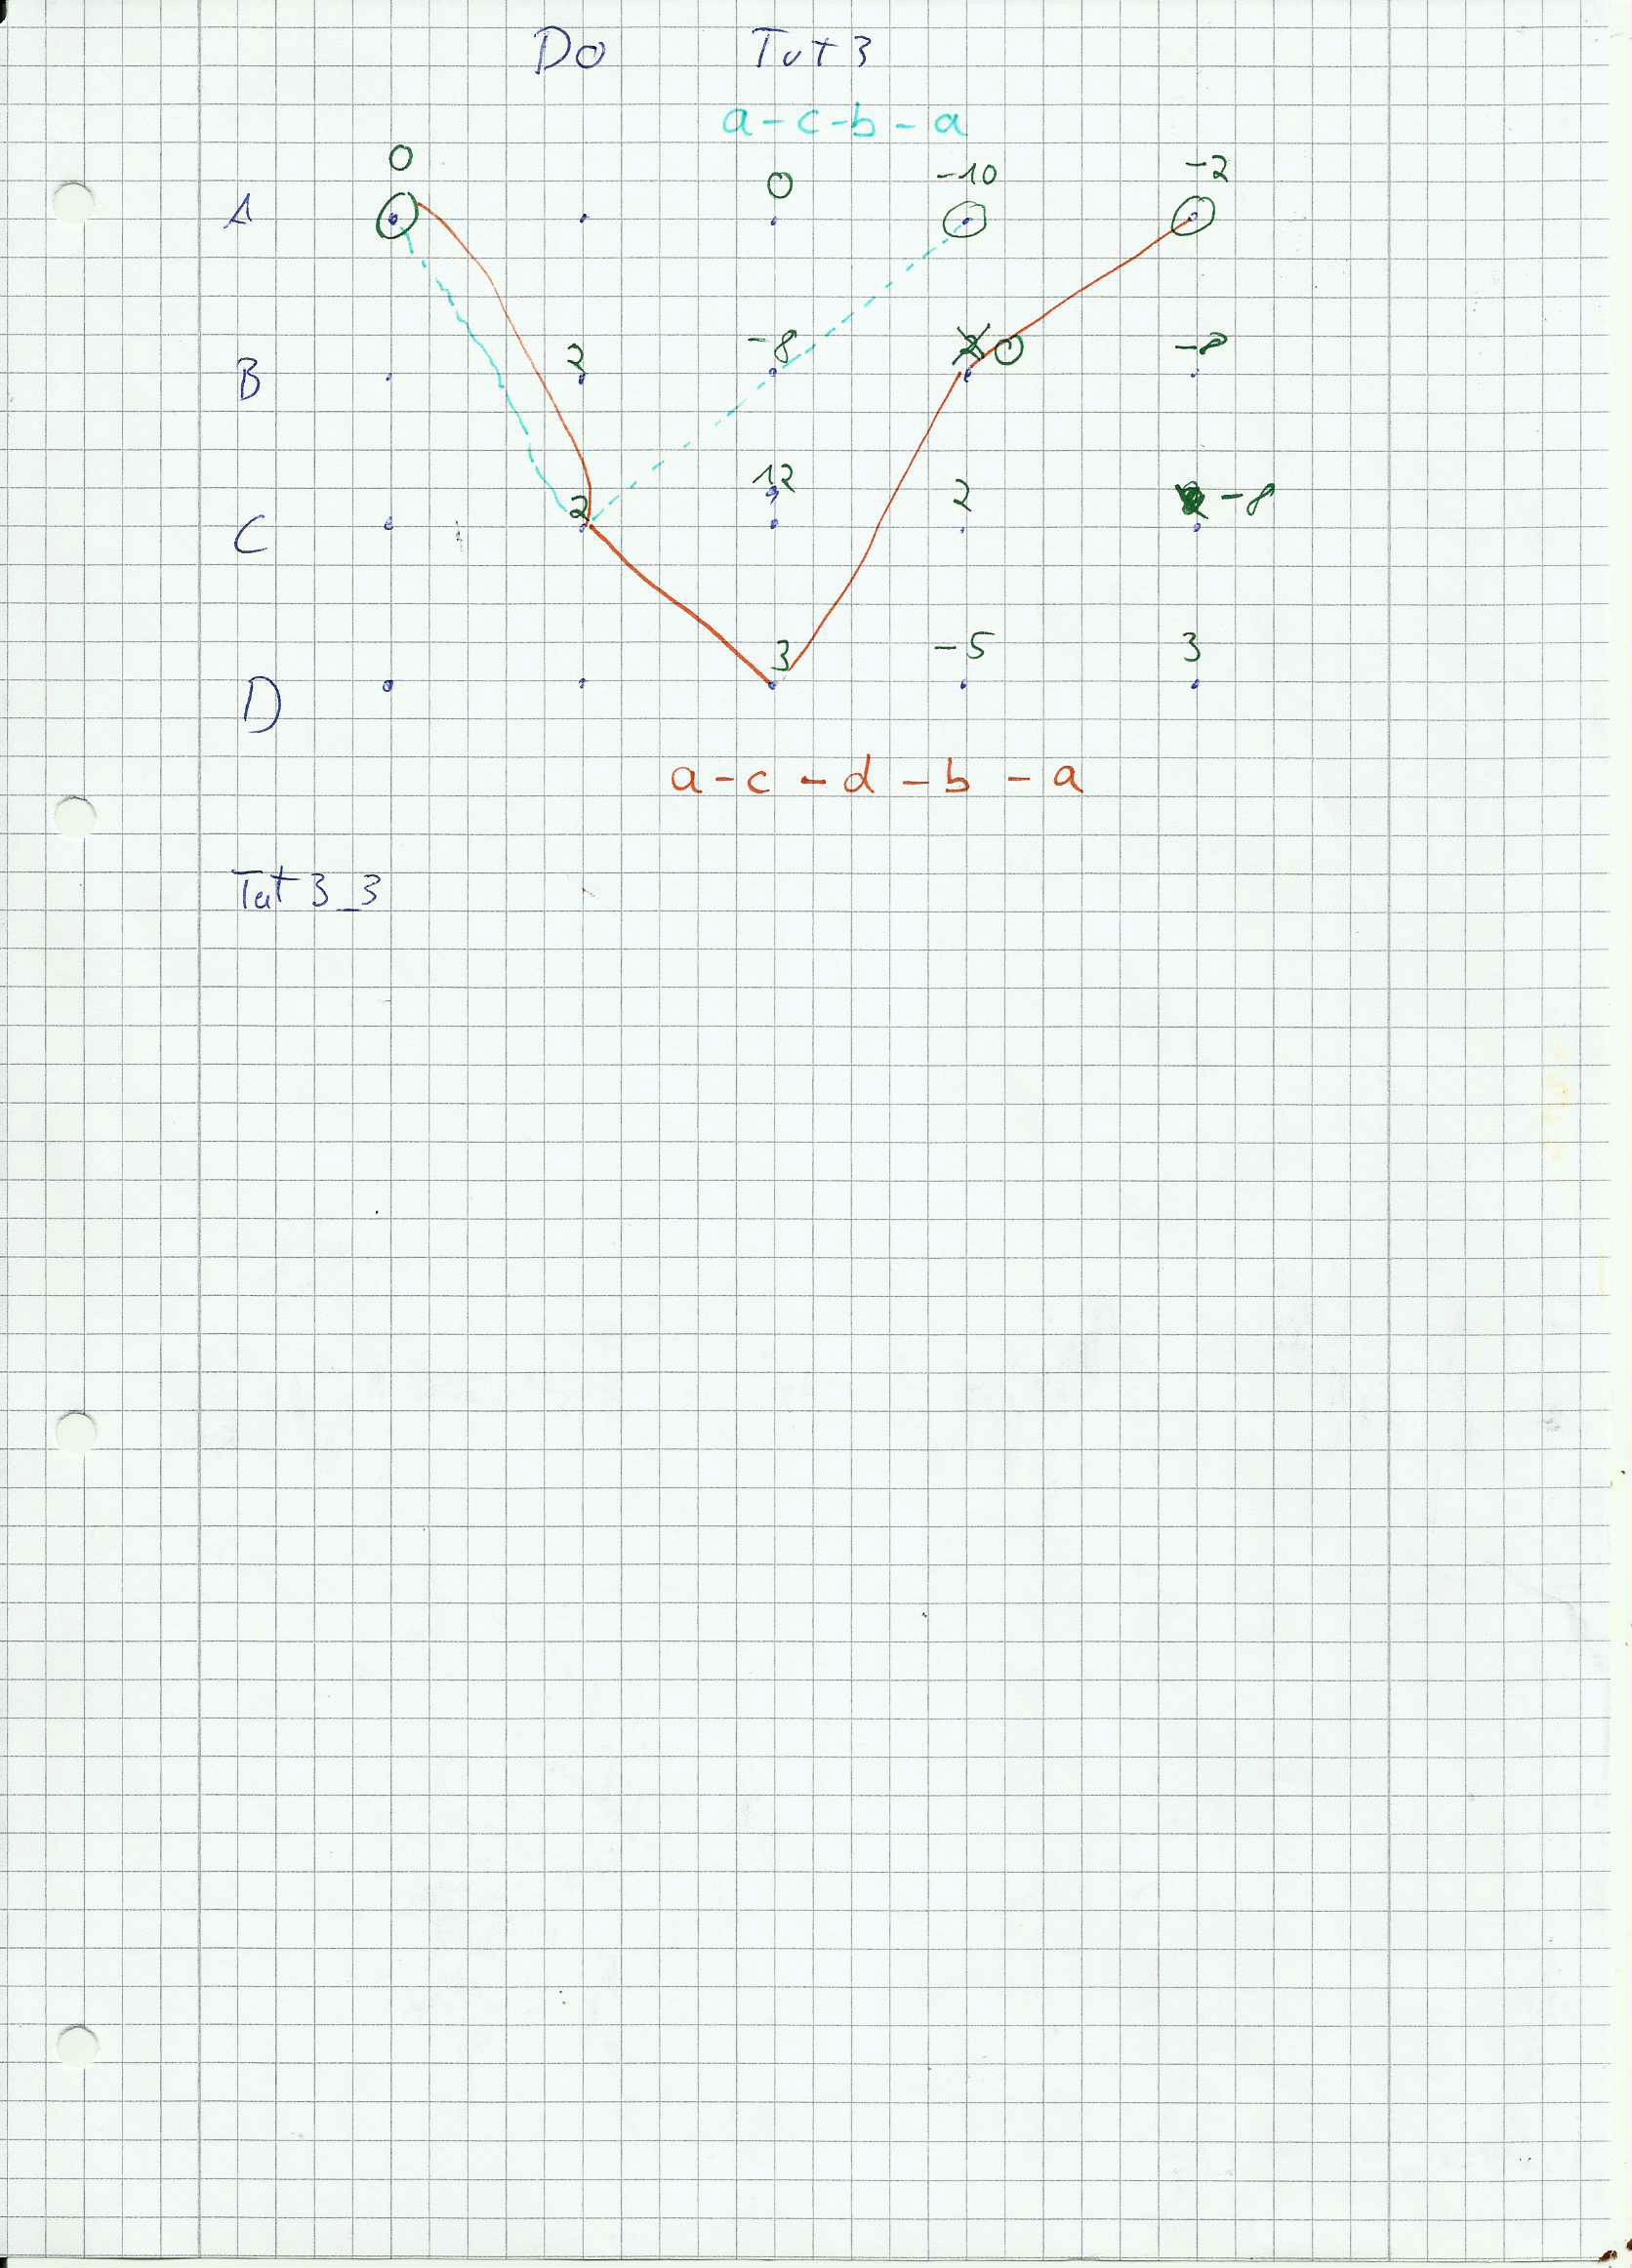 DO Tut 3
a-c-b-a
0 0 -10 -2
A
B 2 -8 0 -8
C 2 12 2 -8
D 3 -5 3
a-c-d-b-a
Tut 3_3